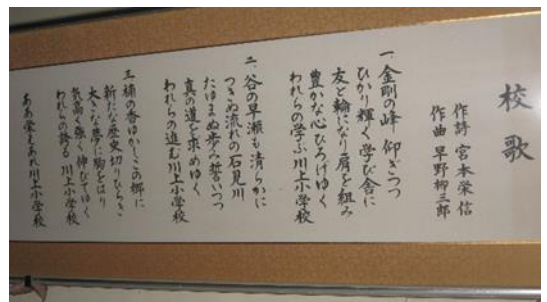 校歌
作詩 宮本栄信
作曲 早野柳三郎
一、金剛の峰 仰ぎつつ
ひかり輝く学び舎に
友と輪になり肩を組み
豊かな心ひろげゆく
われらの学ぶ川上小学校
二、谷の早瀬も清らかに
つきぬ流れの石見川
たゆまぬ歩み誓いつつ
真の道を求めゆく
われらの進む川上小学校
三、楠の香ゆかしこの郷に
新たな歴史切りひらき
大きな夢に胸をはり
気高く強く伸びてゆく
われらの誇る 川上小学校
ああ栄えあれ川上小学校